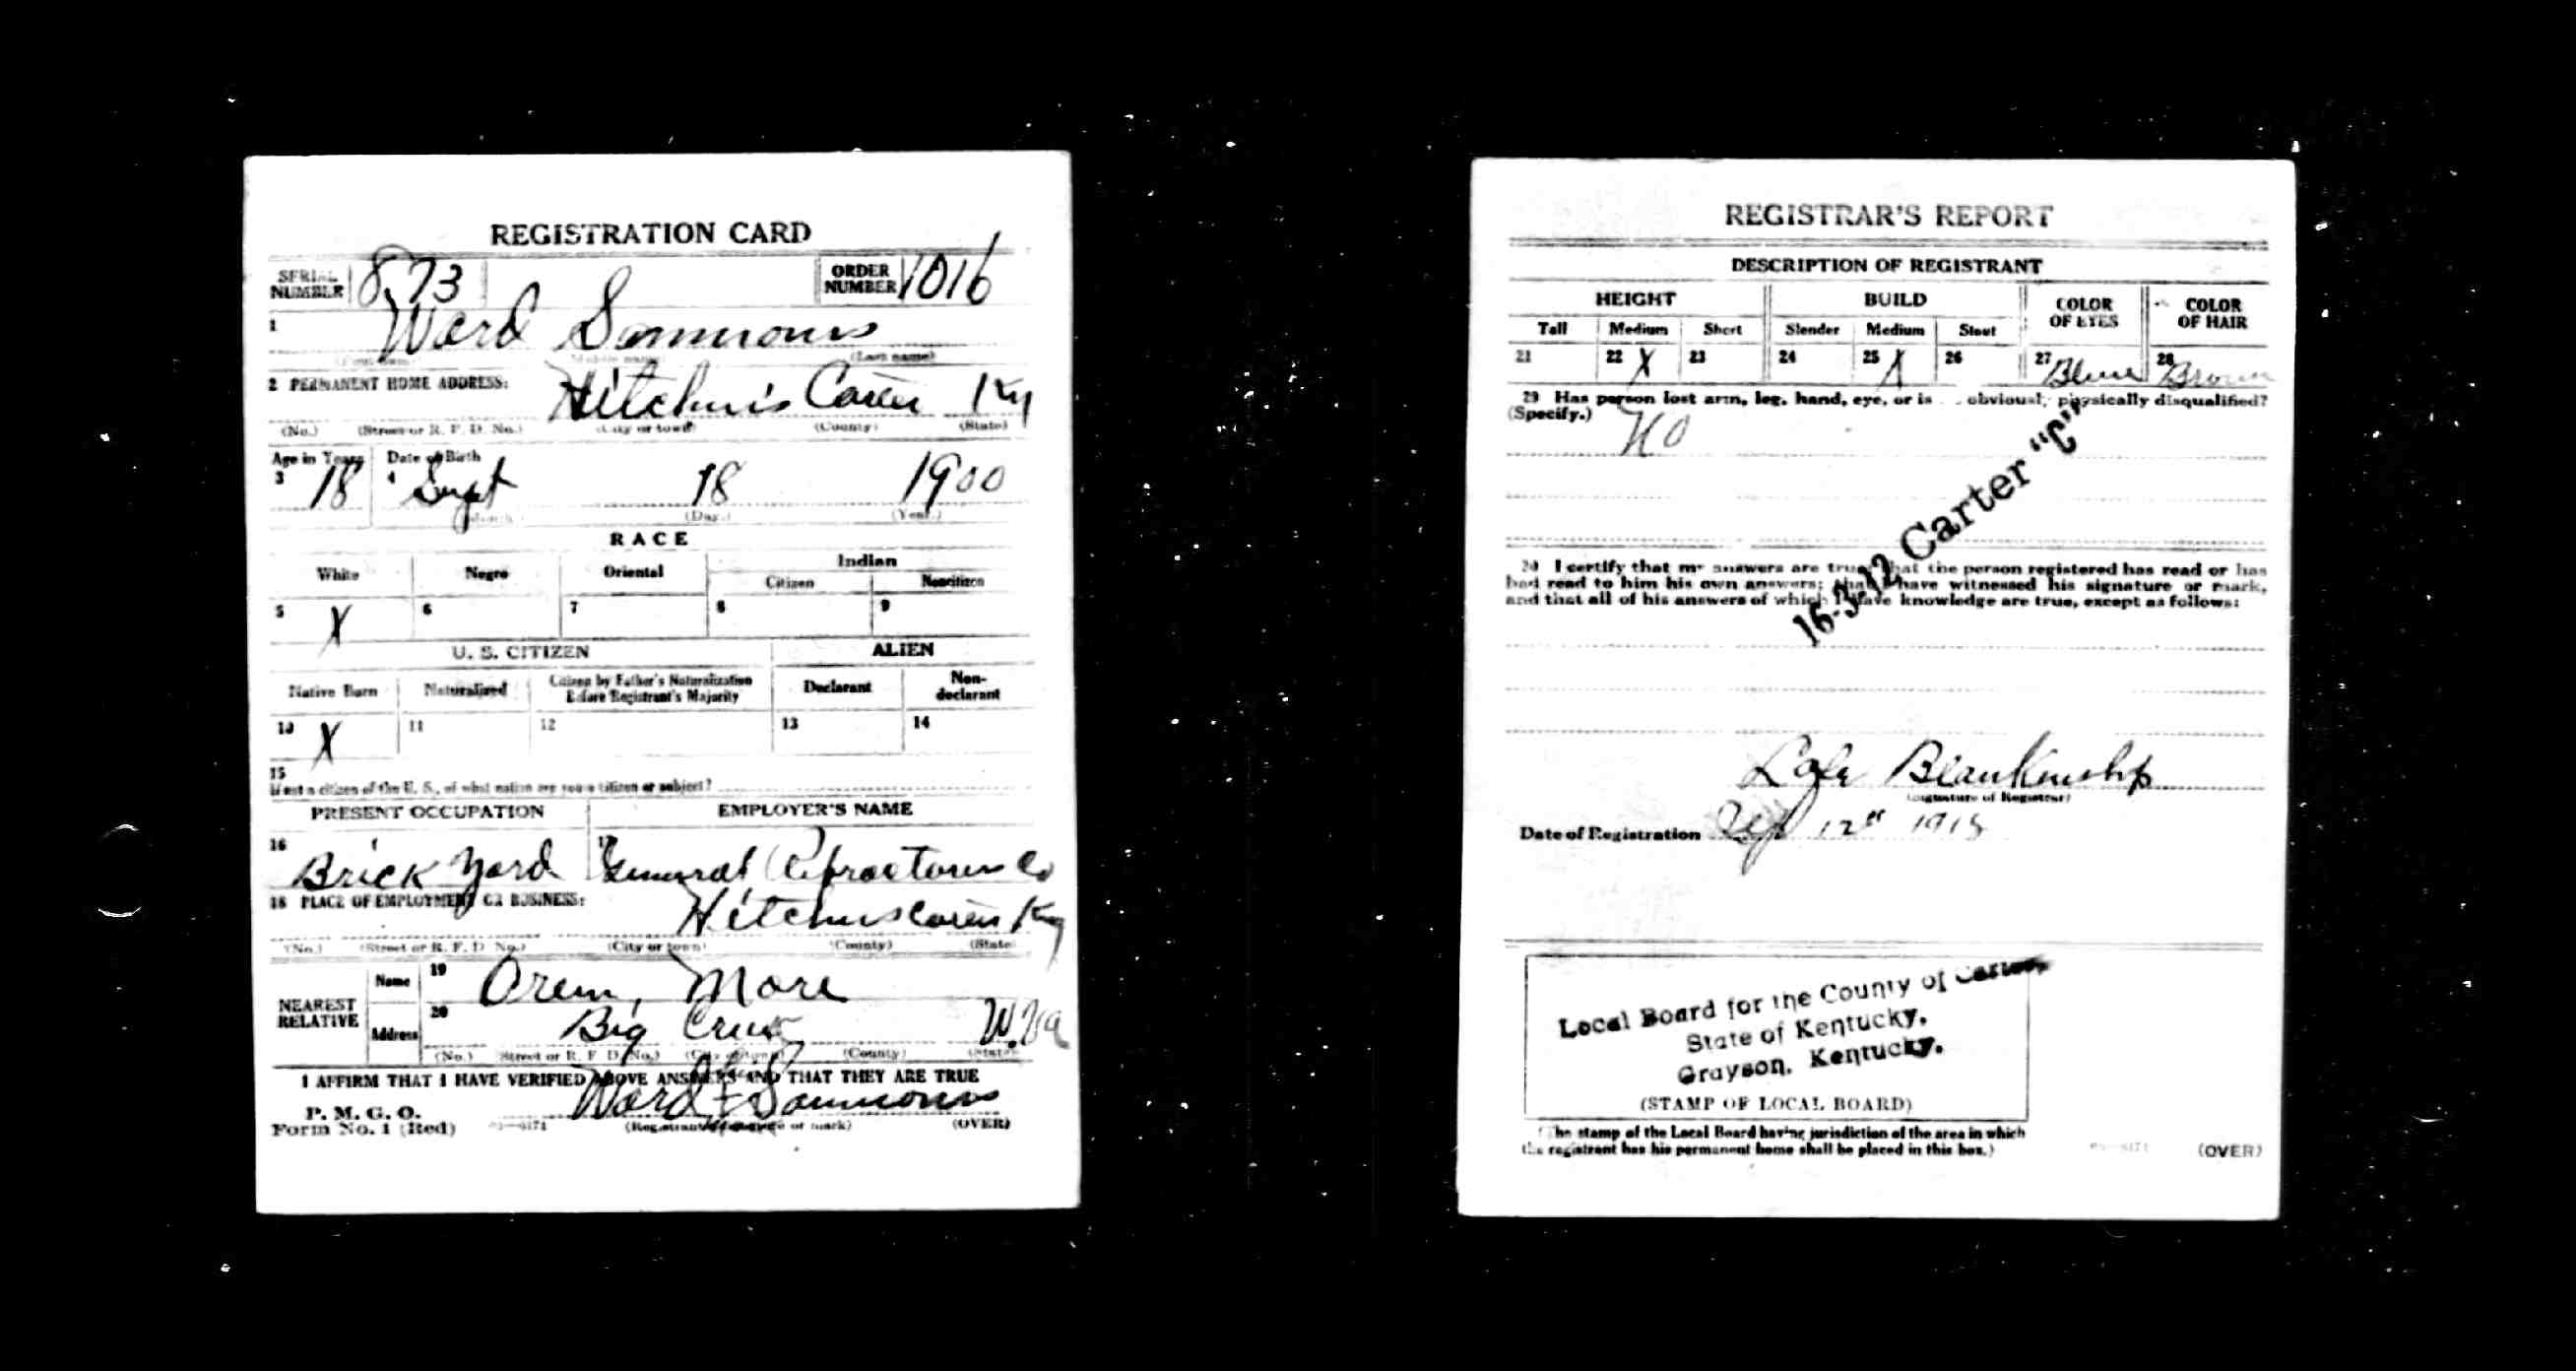 REGISTRATION CARD
SERIAL NUMBER 873 ORDER NUMBER 1016
1 Ward Sammons
(First name) (Middle name) (Last name)
2 PERMANENT HOME ADDRESS: Hitchins Carter Ky
(No.) (Street or R. F. D. No.) (City or town) (County) (State)
Age in Years Date of Birth
3 18 4 Sept 18 1900
(Month.) (Day.) (Year.)
RACE
White Negro Oriental Indian
Citizen Noncitizen
5 X 6 7 8 9
U. S. CITIZEN ALIEN
Native Born Naturalized Citizen by Father's Naturalization Before Registrant's Majority Declarant Non-declarant
10 X 11 12 13 14
15
If not a citizen of the U. S., of what nation are you a citizen or subject?
PRESENT OCCUPATION EMPLOYER'S NAME
16 Brick Yard 17 General Refractories Co
18 PLACE OF EMPLOYMENT OR BUSINESS: Hitchins Carter Ky
(No.) (Street or R. F. D. No.) (City or town) (County) (State)
NEAREST RELATIVE
Name 19 Orem, More
Address 20 Big W.Va
(No.) (Street or R. F. D. No.) (City or town) (County) (State)
I AFFIRM THAT I HAVE VERIFIED ABOVE ANSWERS AND THAT THEY ARE TRUE
P. M. G. O.
Form No. 1 (Red) Ward Sammons
(Registrant's signature or mark) (OVER)
REGISTRAR'S REPORT
DESCRIPTION OF REGISTRANT
HEIGHT BUILD COLOR OF EYES COLOR OF HAIR
Tall Medium Short Slender Medium Stout
21 22 X 23 24 25 X 26 27 Blue 28 Brown
29 Has person lost arm, leg, hand, eye, or is obviously physically disqualified?
(Specify.) No
16-3-12 Carter "C"
30 I certify that my answers are true; that the person registered has read or has
had read to him his own answers; that I have witnessed his signature or mark,
and that all of his answers of which I have knowledge are true, except as follows:
Blankenship
(Signature of Registrar)
Date of Registration Sep 12" 1918
Local Board for the County of Carter,
State of Kentucky,
Grayson, Kentucky.
(STAMP OF LOCAL BOARD)
(The stamp of the Local Board having jurisdiction of the area in which
the registrant has his permanent home shall be placed in this box.)
(OVER)